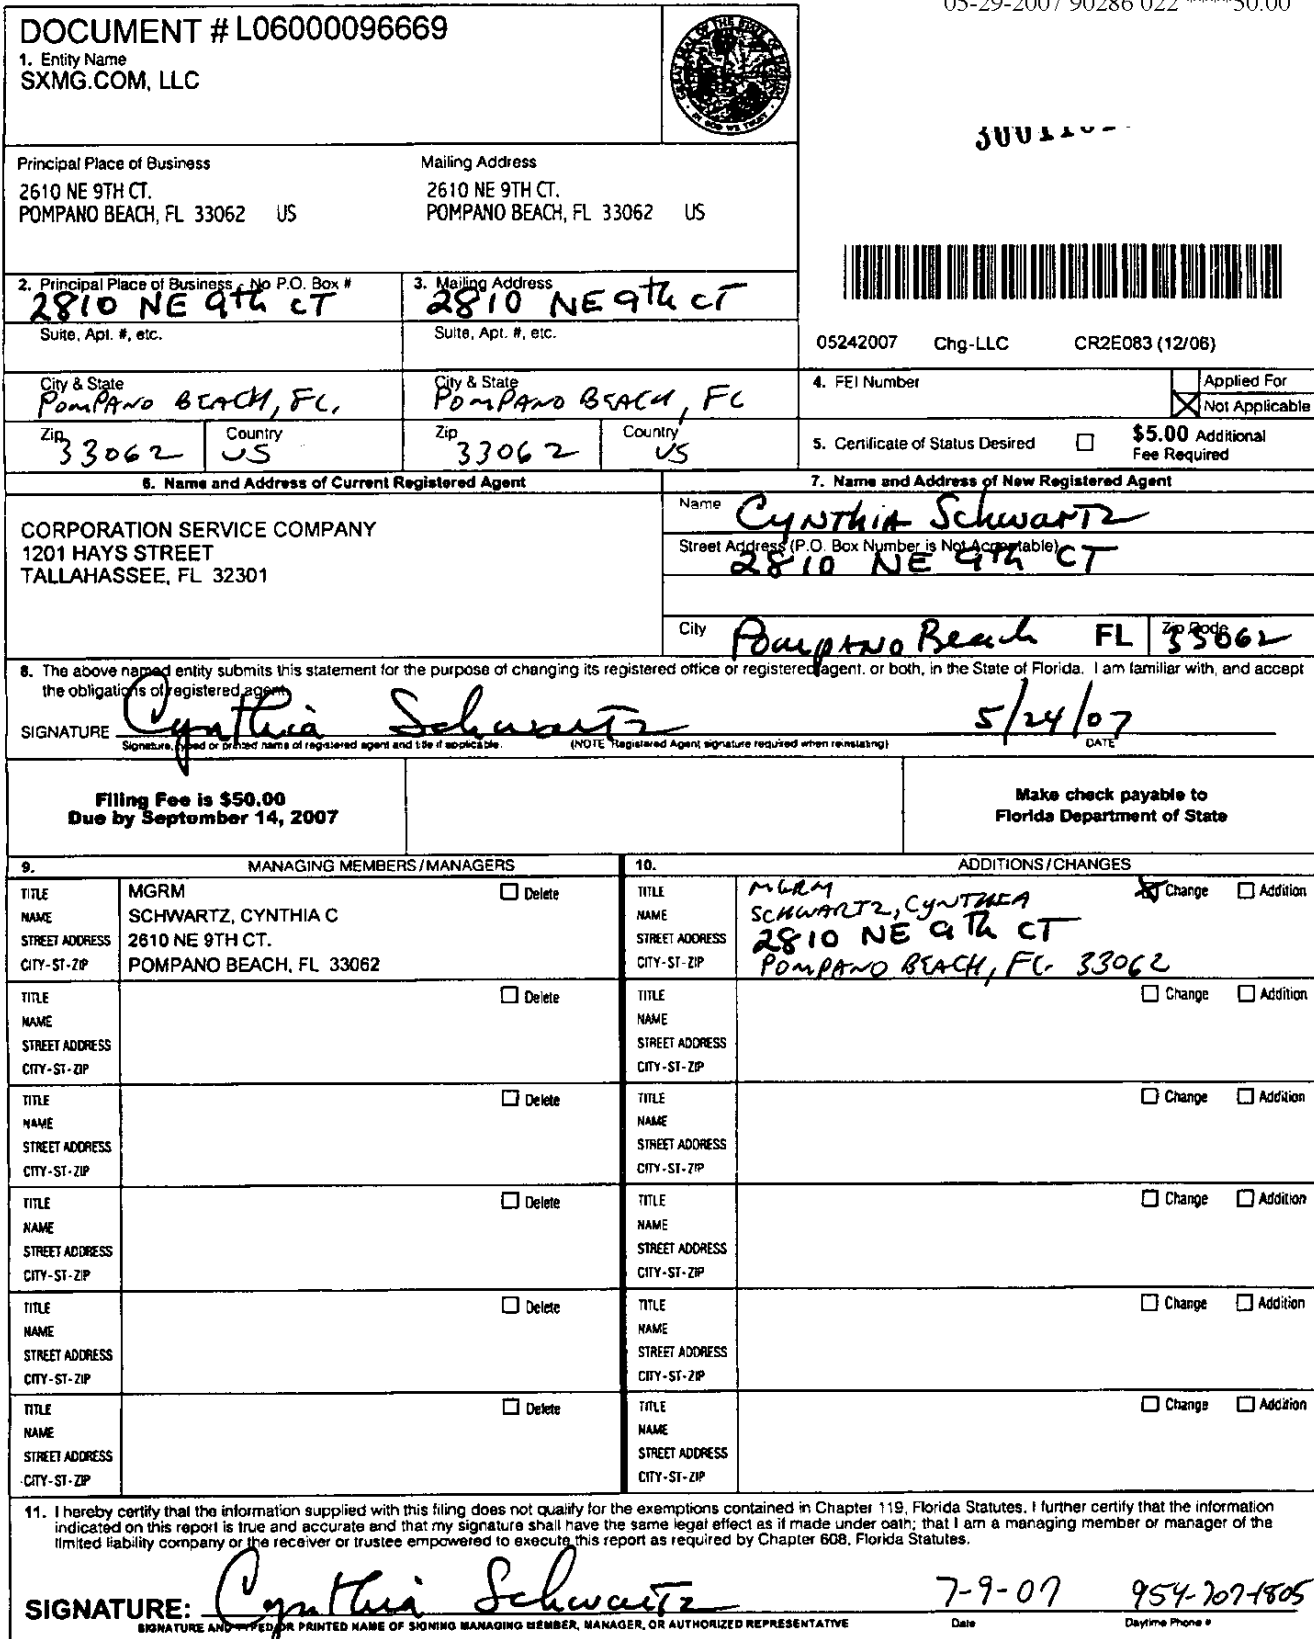 05-29-2007 90286 022 ****50.00
DOCUMENT # L06000096669
1. Entity Name
SXMG.COM, LLC
Principal Place of Business
2610 NE 9TH CT.
POMPANO BEACH, FL 33062 US
Mailing Address
2610 NE 9TH CT.
POMPANO BEACH, FL 33062 US
2. Principal Place of Business - No P.O. Box #
2810 NE 9th CT
3. Mailing Address
2810 NE 9th CT
Suite, Apt. #, etc.
Suite, Apt. #, etc.
05242007 Chg-LLC CR2E083 (12/06)
City & State
POMPANO BEACH, FL.
City & State
POMPANO BEACH, FL
Zip
33062
Country
US
Zip
33062
Country
US
4. FEI Number
Applied For
Not Applicable
5. Certificate of Status Desired
$5.00 Additional
Fee Required
6. Name and Address of Current Registered Agent
CORPORATION SERVICE COMPANY
1201 HAYS STREET
TALLAHASSEE, FL 32301
7. Name and Address of New Registered Agent
Name Cynthia Schwartz
Street Address (P.O. Box Number is Not Acceptable)
2810 NE 9th CT
City Pompano Beach FL Zip Code 33062
8. The above named entity submits this statement for the purpose of changing its registered office or registered agent, or both, in the State of Florida. I am familiar with, and accept
the obligations of registered agent.
SIGNATURE Cynthia Schwartz 5/24/07
Signature, typed or printed name of registered agent and title if applicable. (NOTE Registered Agent signature required when reinstating) DATE
Filing Fee is $50.00
Due by September 14, 2007
Make check payable to
Florida Department of State
9. MANAGING MEMBERS/MANAGERS
TITLE MGRM Delete
NAME SCHWARTZ, CYNTHIA C
STREET ADDRESS 2610 NE 9TH CT.
CITY-ST-ZIP POMPANO BEACH, FL 33062
10. ADDITIONS/CHANGES
TITLE MGRM Change Addition
NAME SCHWARTZ, CYNTHIA
STREET ADDRESS 2810 NE 9th CT
CITY-ST-ZIP POMPANO BEACH, FL. 33062
TITLE Delete
NAME
STREET ADDRESS
CITY-ST-ZIP
TITLE Change Addition
NAME
STREET ADDRESS
CITY-ST-ZIP
TITLE Delete
NAME
STREET ADDRESS
CITY-ST-ZIP
TITLE Change Addition
NAME
STREET ADDRESS
CITY-ST-ZIP
TITLE Delete
NAME
STREET ADDRESS
CITY-ST-ZIP
TITLE Change Addition
NAME
STREET ADDRESS
CITY-ST-ZIP
TITLE Delete
NAME
STREET ADDRESS
CITY-ST-ZIP
TITLE Change Addition
NAME
STREET ADDRESS
CITY-ST-ZIP
TITLE Delete
NAME
STREET ADDRESS
CITY-ST-ZIP
TITLE Change Addition
NAME
STREET ADDRESS
CITY-ST-ZIP
11. I hereby certify that the information supplied with this filing does not qualify for the exemptions contained in Chapter 119, Florida Statutes. I further certify that the information
indicated on this report is true and accurate and that my signature shall have the same legal effect as if made under oath; that I am a managing member or manager of the
limited liability company or the receiver or trustee empowered to execute this report as required by Chapter 608, Florida Statutes.
SIGNATURE: Cynthia Schwartz 7-9-07 954-707-1805
SIGNATURE AND TYPED OR PRINTED NAME OF SIGNING MANAGING MEMBER, MANAGER, OR AUTHORIZED REPRESENTATIVE Date Daytime Phone #